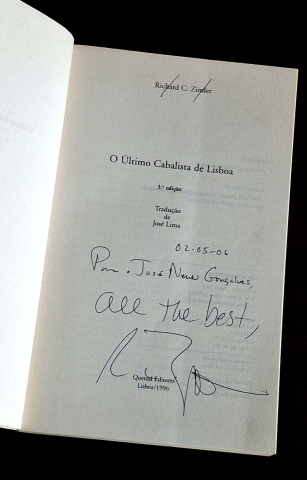 Richard C. Zimler
O Último Cabalista de Lisboa
3.ª edição
Tradução
de
José Lima
02-05-06
Para José Gonçalves,
all the best,
Quetzal Editores
Lisboa/1996